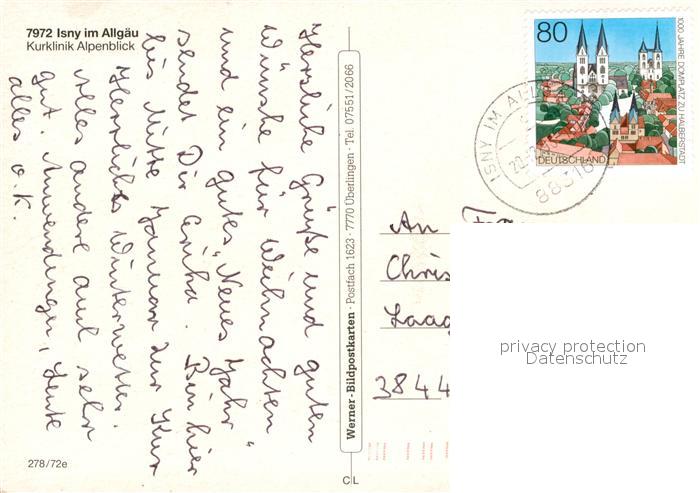 7972 Isny im Allgäu
Kurklinik Alpenblick
Herzliche Grüße und guten
Wünsche für Weihnachten
und ein gutes „Neues Jahr"
sendet Dir Bin hier
bis Mitte Januar zur Kur
Herrliches Winterwetter.
Alles andere auch sehr
gut. Anwendungen, Leute
alles o.k.
278/72e
Werner-Bildpostkarten · Postfach 1623 · 7770 Überlingen · Tel. 07551/2066
C L
80
1000 JAHRE DOMPLATZ ZU HALBERSTADT
DEUTSCHLAND
ISNY IM AL
88316
An
Chris
3844
privacy protection
Datenschutz